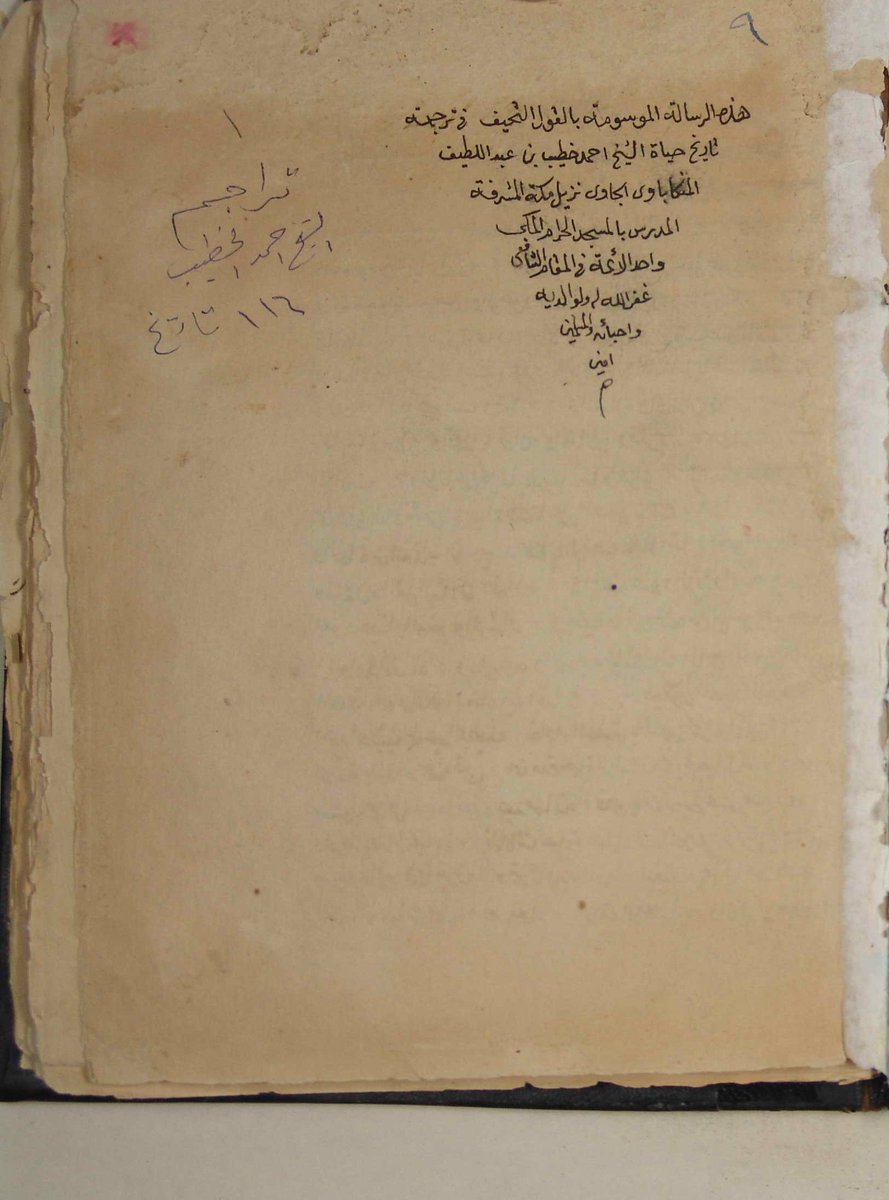 ٩
هذه الرسالة الموسومة بالقول النحيف في ترجمة
تاريخ حياة الشيخ احمد خطيب بن عبد اللطيف
المنكاباوى الجاوى نزيل مكة المشرفة
المدرس بالمسجد الحرام المكى
واحد الأئمة في المقام الشافعى
غفر الله له ولوالديه
واحبائه والمسلمين
امين
م
١
تراجم
الشيخ احمد الخطيب
١١٦ تاريخ